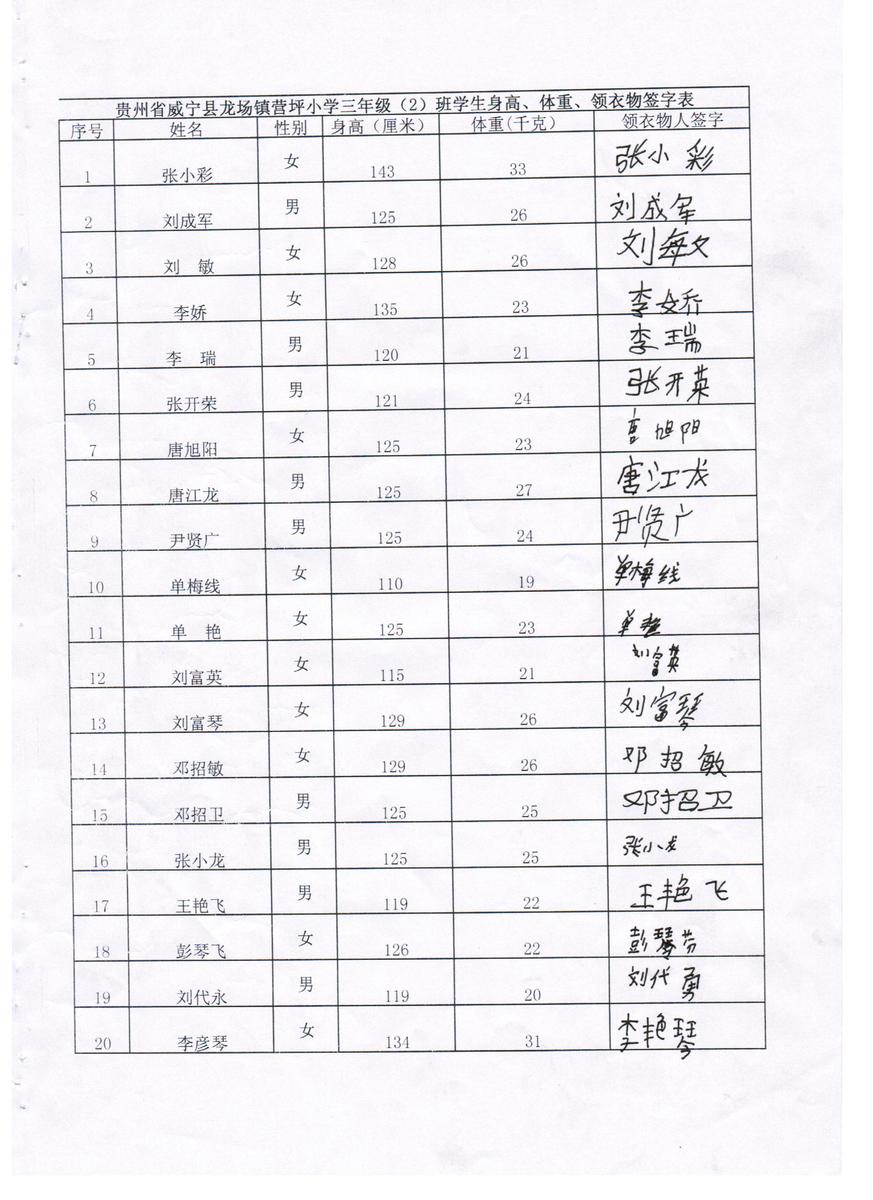 贵州省威宁县龙场镇营坪小学三年级（2）班学生身高、体重、领衣物签字表
序号 姓名 性别 身高（厘米） 体重(千克) 领衣物人签字
1 张小彩 女 143 33 张小彩
2 刘成军 男 125 26 刘成军
3 刘 敏 女 128 26 刘每文
4 李娇 女 135 23 李娇
5 李 瑞 男 120 21 李瑞
6 张开荣 男 121 24 张开英
7 唐旭阳 女 125 23 旭阳
8 唐江龙 男 125 27 唐江龙
9 尹贤广 男 125 24 尹贤广
10 单梅线 女 110 19 单梅线
11 单 艳 女 125 23 单
12 刘富英 女 115 21 刘富英
13 刘富琴 女 129 26 刘富琴
14 邓招敏 女 129 26 邓招敏
15 邓招卫 男 125 25 邓招卫
16 张小龙 男 125 25 张小龙
17 王艳飞 男 119 22 王艳飞
18 彭琴飞 女 126 22 彭琴芬
19 刘代永 男 119 20 刘代勇
20 李彦琴 女 134 31 李艳琴